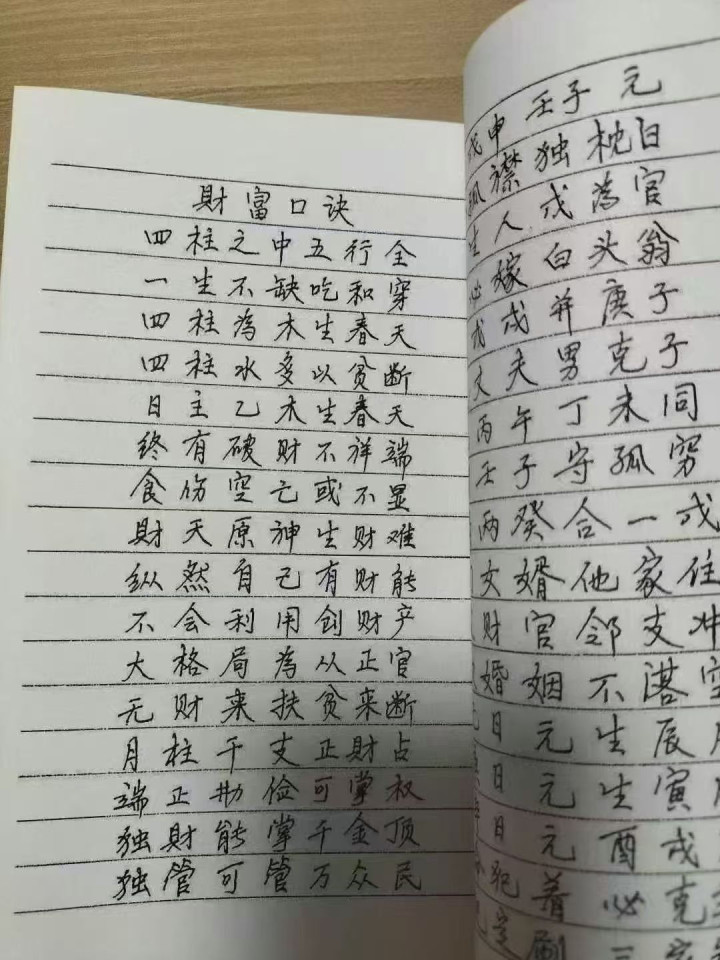 財富口诀
四柱之中五行全
一生不缺吃和穿
四柱為木生春天
四柱水多以贫断
日主乙木生春天
终有破财不祥端
食伤空亡或不显
財天原神生财难
纵然自己有财能
不会利用创财产
大格局為从正官
无财来扶贫来断
月柱干支正財占
端正勤俭可掌权
独財能掌千金顶
独管可管万众民
戊申壬子元
襟独枕白
人戌為官
嫁白头翁
戌并庚子
夫男克子
丙午丁未同
壬子守孤穷
两癸合一戊
女婿他家住
财官邻支冲
婚姻不湛空
日元生辰
日元生寅
日元酉戌
犯着必克